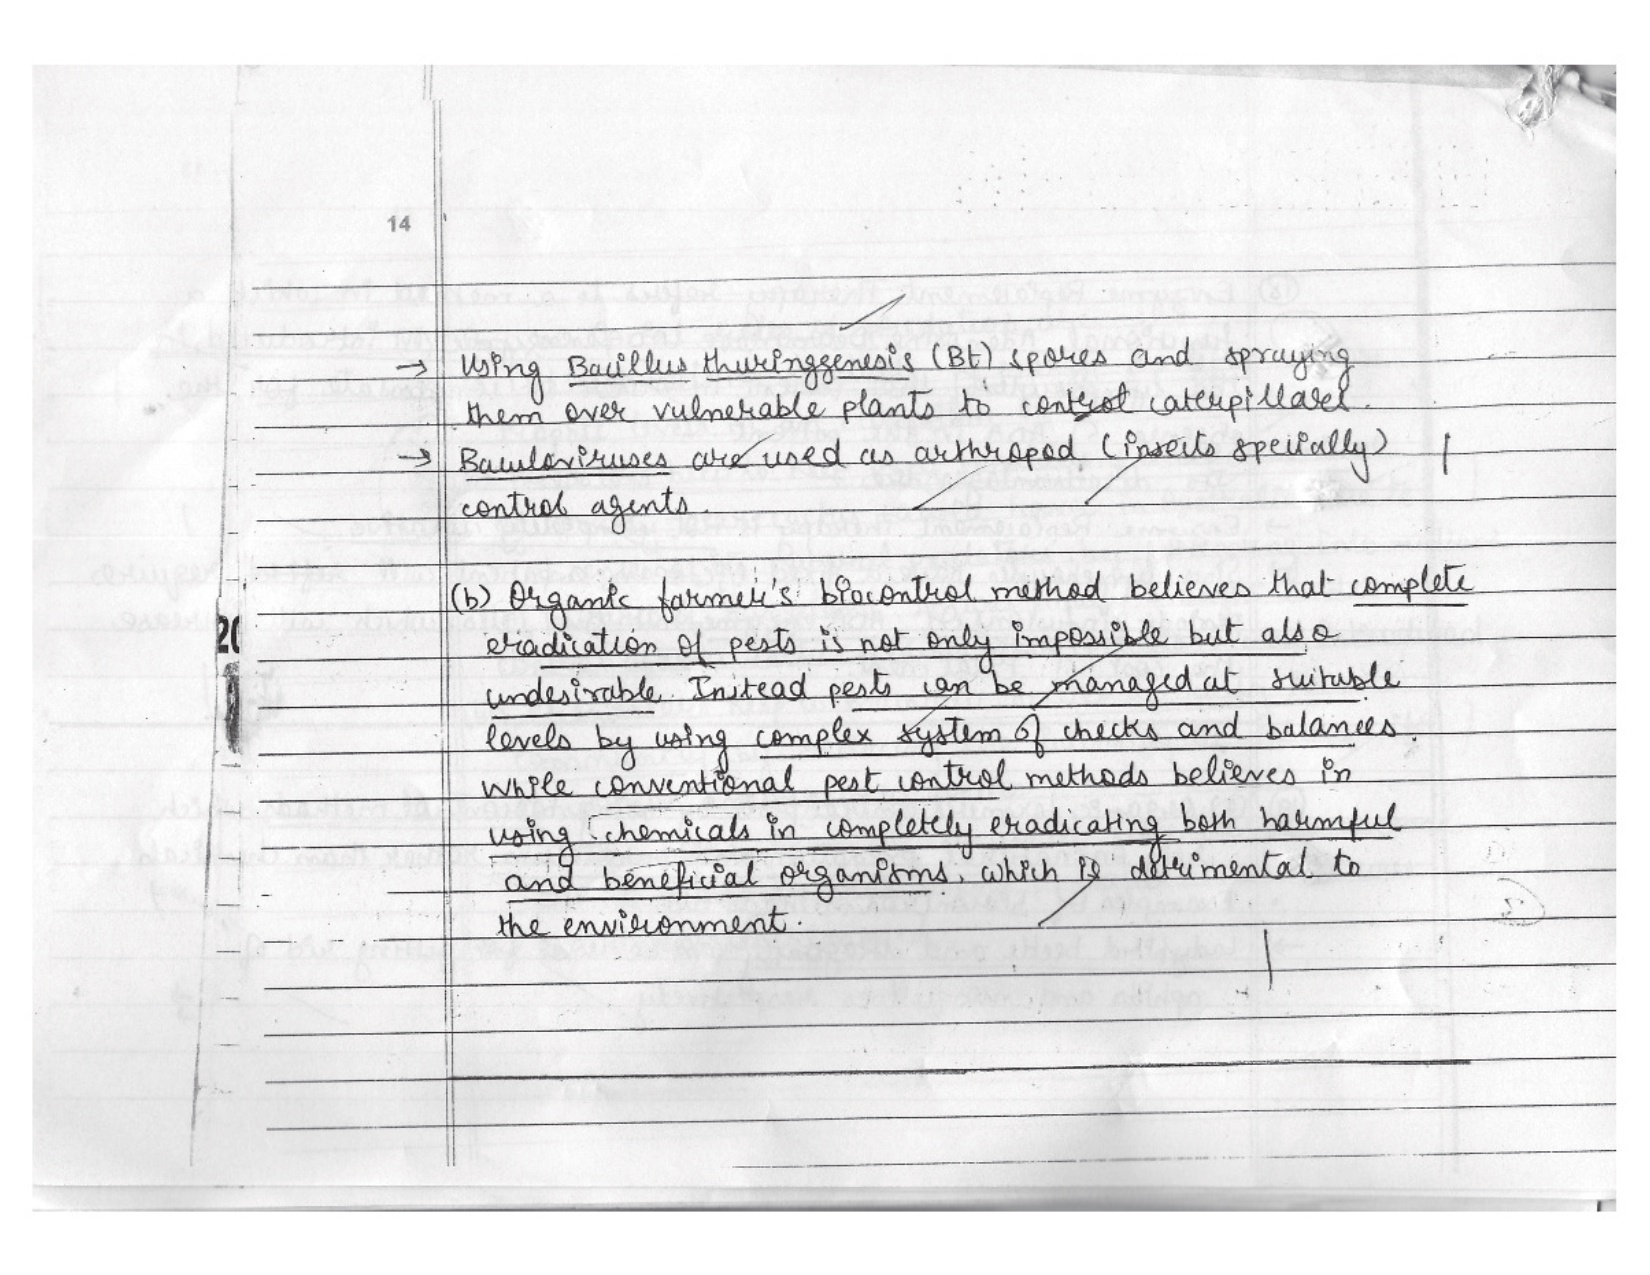 14
→ Using Bacillus thuringgenesis (Bt) spores and spraying
them over vulnerable plants to control caterpillars.
→ Baculoviruses are used as arthropod (insects specially)
control agents.
(b) Organic farmer's biocontrol method believes that complete
eradication of pests is not only impossible but also
undesirable. Instead pests can be managed at suitable
levels by using complex system of checks and balances.
While conventional pest control methods believes in
using chemicals in completely eradicating both harmful
and beneficial organisms, which is detrimental to
the environment.